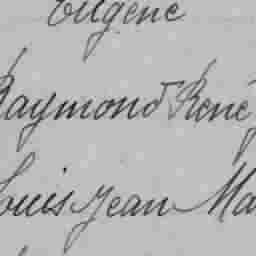 Eugène
Raymond René
Louis Jean Ma